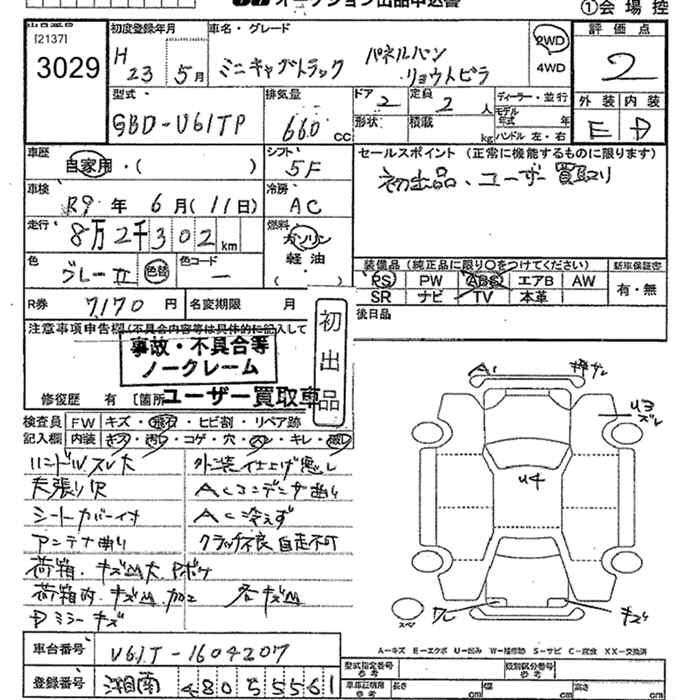 オークション出品申込書
①会場控
出品番号
[2137]
3029
初度登録年月
H23 5月
車名・グレード
ミニキャブトラック パネルバン
リョウトビラ
2WD
4WD
評価点
2
型式
GBD-U61TP
排気量
660 cc
ドア
2
定員
2 人
形状
積載
kg
ディーラー・並行
モデル年式 年
ハンドル 左・右
外装 内装
E D
車歴
自家用・( )
シフト
5F
セールスポイント (正常に機能するものに限ります)
初出品、ユーザー買取り
車検
R9 年 6月(11日)
冷房
AC
走行
8万2千302km
燃料
ガソリン
軽油
( )
色
グレーII 色替
色コード
ー
装備品(純正品に限り〇をつけてください)
新車保証書
PS PW ABS エアB AW
SR ナビ TV 本革
有・無
R券 7170円
名変期限 月
後日品
注意事項申告欄(不具合内容等は具体的に記入して
初出品
事故・不具合等
ノークレーム
ユーザー買取車
修復歴 有 [箇所
検査員記入欄
FW キズ・飛石・ヒビ割・リペア跡
内装 キズ・汚レ・コゲ・穴・スレ・キレ・破レ
ハンドルスレ大 外装仕上げ悪し
天張り穴 ACコンデンサ曲り
シートカバー付 AC冷えず
アンテナ曲り クラッチ不良 自走不可
荷箱、キズ凹大
荷箱内、キズ凹、加工 各キズ凹
Dミラーキズ
A1
U3
ズレ
U4
ワレ
キズ
スペア
A-キズ E-エクボ U-凹み W-補修跡 S-サビ C-腐食 XX-交換済
車台番号 U61T-1604207
登録番号 湘南 480 5 5561
型式指定番号
参考
類別区分番号
参考
車庫証明用
参考
長さ cm
幅 cm
高さ cm